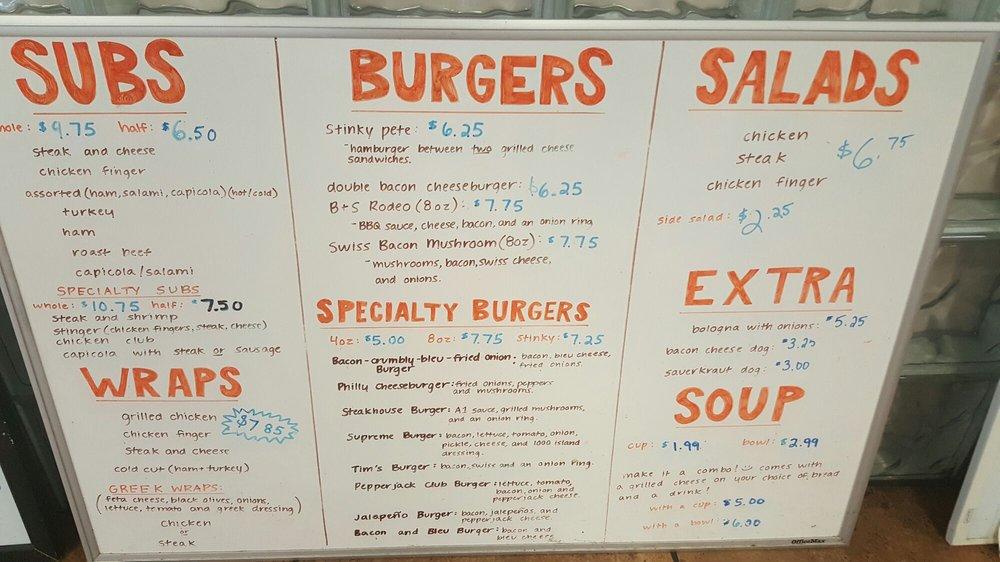 SUBS
whole: $9.75 half: $6.50
steak and cheese
chicken finger
assorted (ham, salami, capicola) (hot/cold)
turkey
ham
roast beef
capicola/salami
SPECIALTY SUBS
whole: $10.75 half: $7.50
steak and shrimp
stinger (chicken fingers, steak, cheese)
chicken club
capicola with steak or sausage
WRAPS
grilled chicken
$7.85
chicken finger
steak and cheese
cold cut (ham + turkey)
GREEK WRAPS:
(feta cheese, black olives, onions,
lettuce, tomato and greek dressing)
chicken
or
steak
BURGERS
stinky pete: $6.25
-hamburger between two grilled cheese
sandwiches.
double bacon cheeseburger: $6.25
B+S Rodeo (8oz): $7.75
-BBQ sauce, cheese, bacon, and an onion ring
Swiss Bacon Mushroom (8oz): $7.75
-mushrooms, bacon, swiss cheese,
and onions.
SPECIALTY BURGERS
4oz: $5.00 8oz: $7.75 stinky: $7.25
Bacon-crumbly-bleu-fried onion: bacon, bleu cheese,
Burger fried onions.
Philly Cheeseburger: fried onions, peppers
and mushrooms.
Steakhouse Burger: A1 sauce, grilled mushrooms,
and an onion ring.
Supreme Burger: bacon, lettuce, tomato, onion,
pickle, cheese, and 1000 island
dressing.
Tim's Burger: bacon, swiss and an onion ring.
Pepperjack Club Burger: lettuce, tomato,
bacon, onion and
pepperjack cheese.
Jalapeño Burger: bacon, jalapeños, and
pepperjack cheese.
Bacon and Bleu Burger: bacon and
bleu cheese.
SALADS
chicken
steak
$6.75
chicken finger
side salad: $2.25
EXTRA
bologna with onions: $5.25
bacon cheese dog: $3.25
sauerkraut dog: $3.00
SOUP
cup: $1.99 bowl: $2.99
make it a combo! comes with
a grilled cheese on your choice of bread
and a drink!
with a cup: $5.00
with a bowl: $6.00
OfficeMax